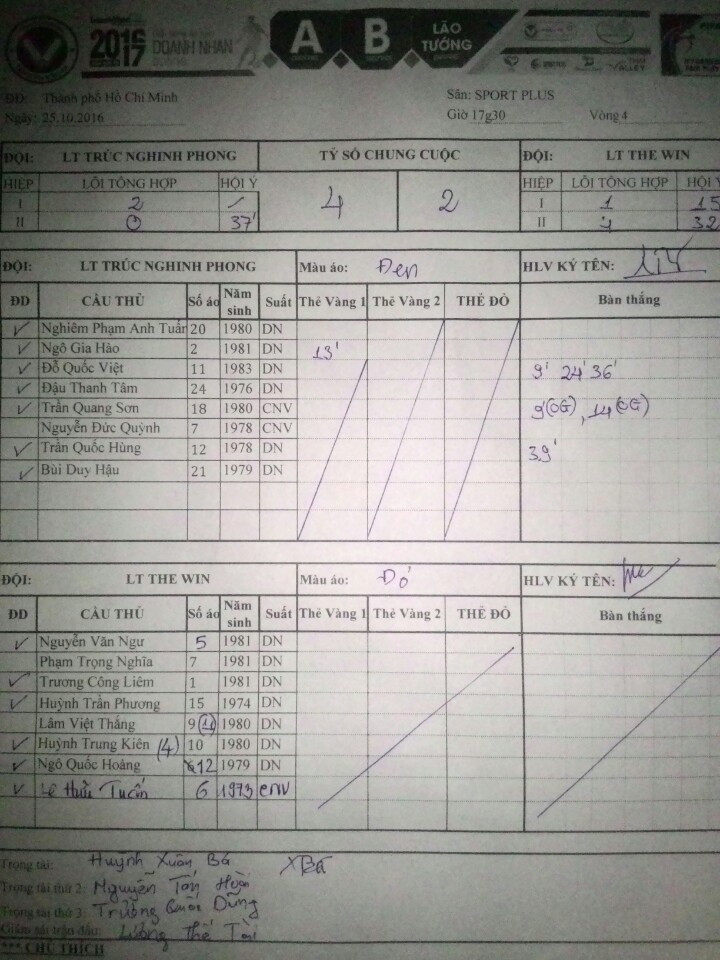 2016
2017
DOANH NHÂN
A
B
LÃO TƯỚNG
ĐĐ: Thành phố Hồ Chí Minh
Sân: SPORT PLUS
Ngày: 25.10.2016
Giờ 17g30
Vòng 4
ĐỘI: LT TRÚC NGHINH PHONG TỶ SỐ CHUNG CUỘC ĐỘI: LT THE WIN
HIỆP LỖI TỔNG HỢP HỘI Ý 4 2 HIỆP LỖI TỔNG HỢP HỘI Ý
I 2 / I 1 15
II 0 37' II 4 32
ĐỘI: LT TRÚC NGHINH PHONG Màu áo: Đen HLV KÝ TÊN:
ĐD CẦU THỦ Số áo Năm sinh Suất Thẻ Vàng 1 Thẻ Vàng 2 THẺ ĐỎ Bàn thắng
✓ Nghiêm Phạm Anh Tuấn 20 1980 DN
✓ Ngô Gia Hào 2 1981 DN 13'
✓ Đỗ Quốc Việt 11 1983 DN 9' 24' 36'
✓ Đậu Thanh Tâm 24 1976 DN
✓ Trần Quang Sơn 18 1980 CNV 9'(OG), 14(OG)
Nguyễn Đức Quỳnh 7 1978 CNV
✓ Trần Quốc Hùng 12 1978 DN 39'
✓ Bùi Duy Hậu 21 1979 DN
ĐỘI: LT THE WIN Màu áo: Đỏ HLV KÝ TÊN:
ĐD CẦU THỦ Số áo Năm sinh Suất Thẻ Vàng 1 Thẻ Vàng 2 THẺ ĐỎ Bàn thắng
✓ Nguyễn Văn Ngư 5 1981 DN
Phạm Trọng Nghĩa 7 1981 DN
✓ Trương Công Liêm 1 1981 DN
✓ Huỳnh Trần Phương 15 1974 DN
Lâm Việt Thắng 9 (11) 1980 DN
✓ Huỳnh Trung Kiên (4) 10 1980 DN
✓ Ngô Quốc Hoàng 12 1979 DN
✓ Lê Hữu Tuấn 6 1973 CNV
Trọng tài: Huỳnh Xuân Bá XBá
Trọng tài thứ 2: Nguyễn Tấn
Trọng tài thứ 3: Trương Quốc Dũng
Giám sát trận đấu: Lương Thế Tài
*** CHÚ THÍCH